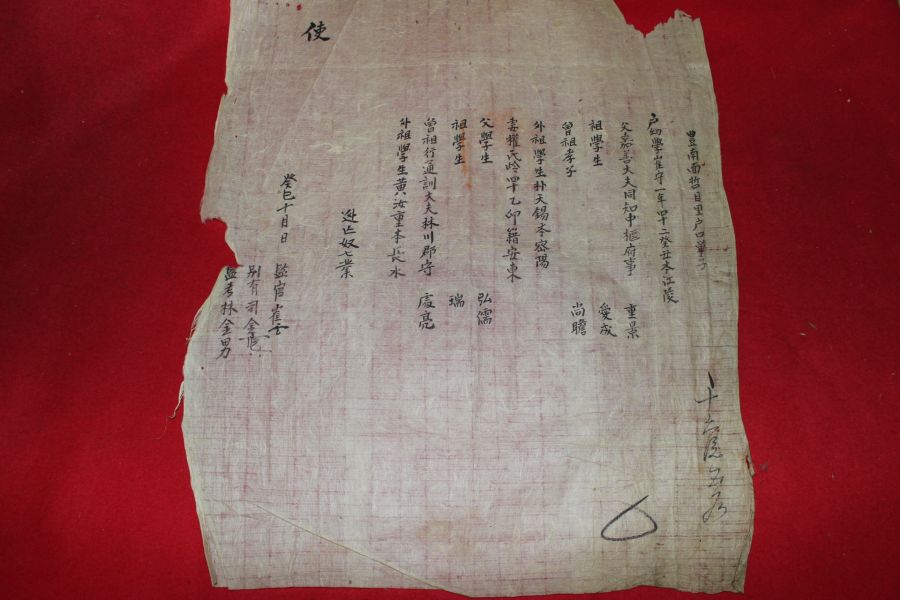 豊南面哲目里戶口單子
戶幼學崔守一年四十二癸丑本江陵
父嘉善大夫同知中樞府事 重景
祖學生 愛成
曾祖孝子 尚瞻
外祖學生朴天錫本密陽
妻權氏岭四十乙卯籍安東
父學生 弘儒
祖學生 瑞
曾祖行通訓大夫林川郡守 處亮
外祖學生黃汝重本長水
逃亡奴七業
癸巳十月日
監官崔
別有司金
監考林金男
使
十六